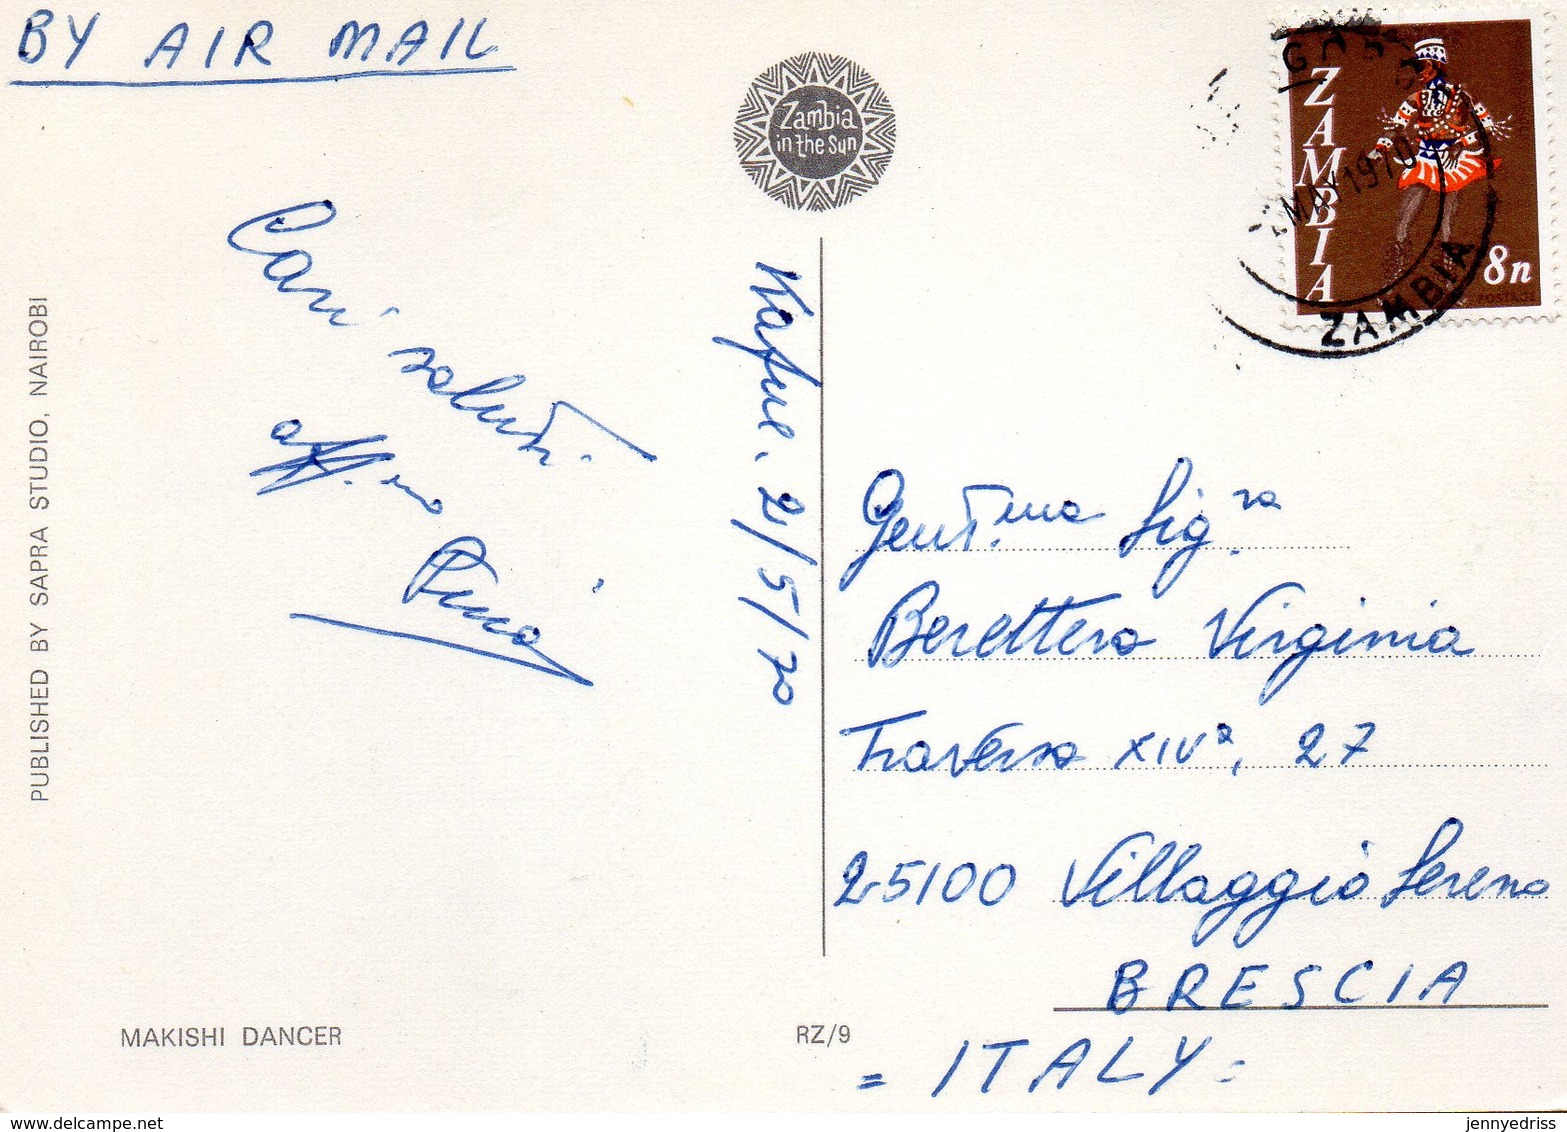 BY AIR MAIL
Zambia
in the Sun
ZAMBIA
8n
POSTAGE
MAY 1970
ZAMBIA
Cari saluti
aff.mo
Pino
Kafue, 2/5/70
Gent.ma Sig.ra
Berettera Virginia
Traversa XIVa, 27
25100 Villaggio Sereno
BRESCIA
= ITALY =
PUBLISHED BY SAPRA STUDIO, NAIROBI
MAKISHI DANCER
RZ/9
www.delcampe.net
jennyedriss